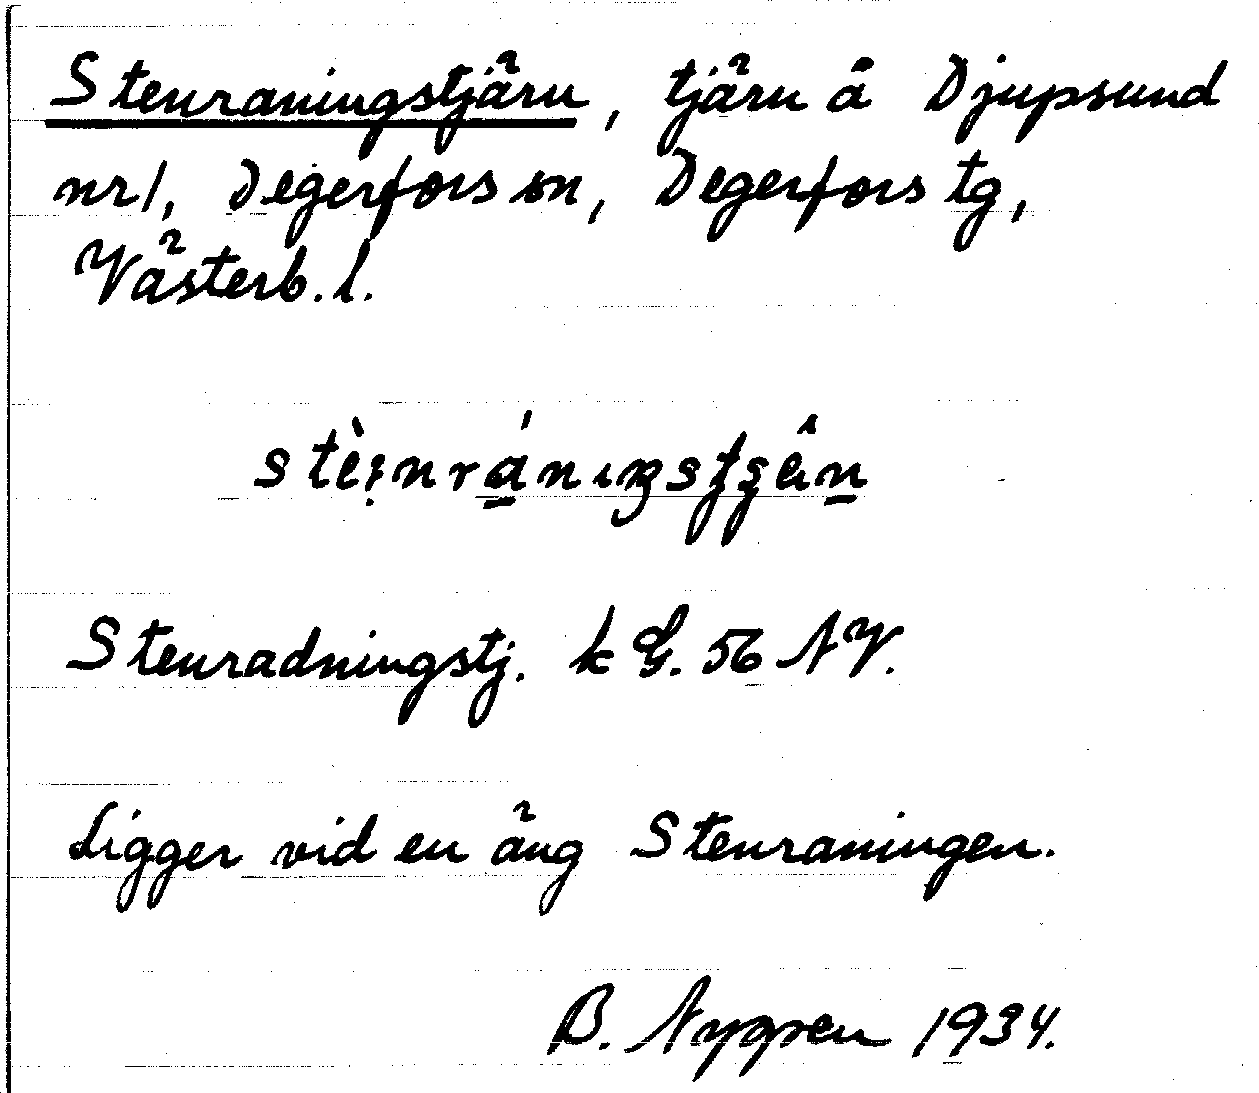 Stenraningstjärn, tjärn å Djupsund
nr 1, Degerfors sn, Degerfors tg,
Västerb. l.
Stenradningstj. k G. 56 NV.
Ligger vid en äng Stenraningen.
B. Nygren 1934.